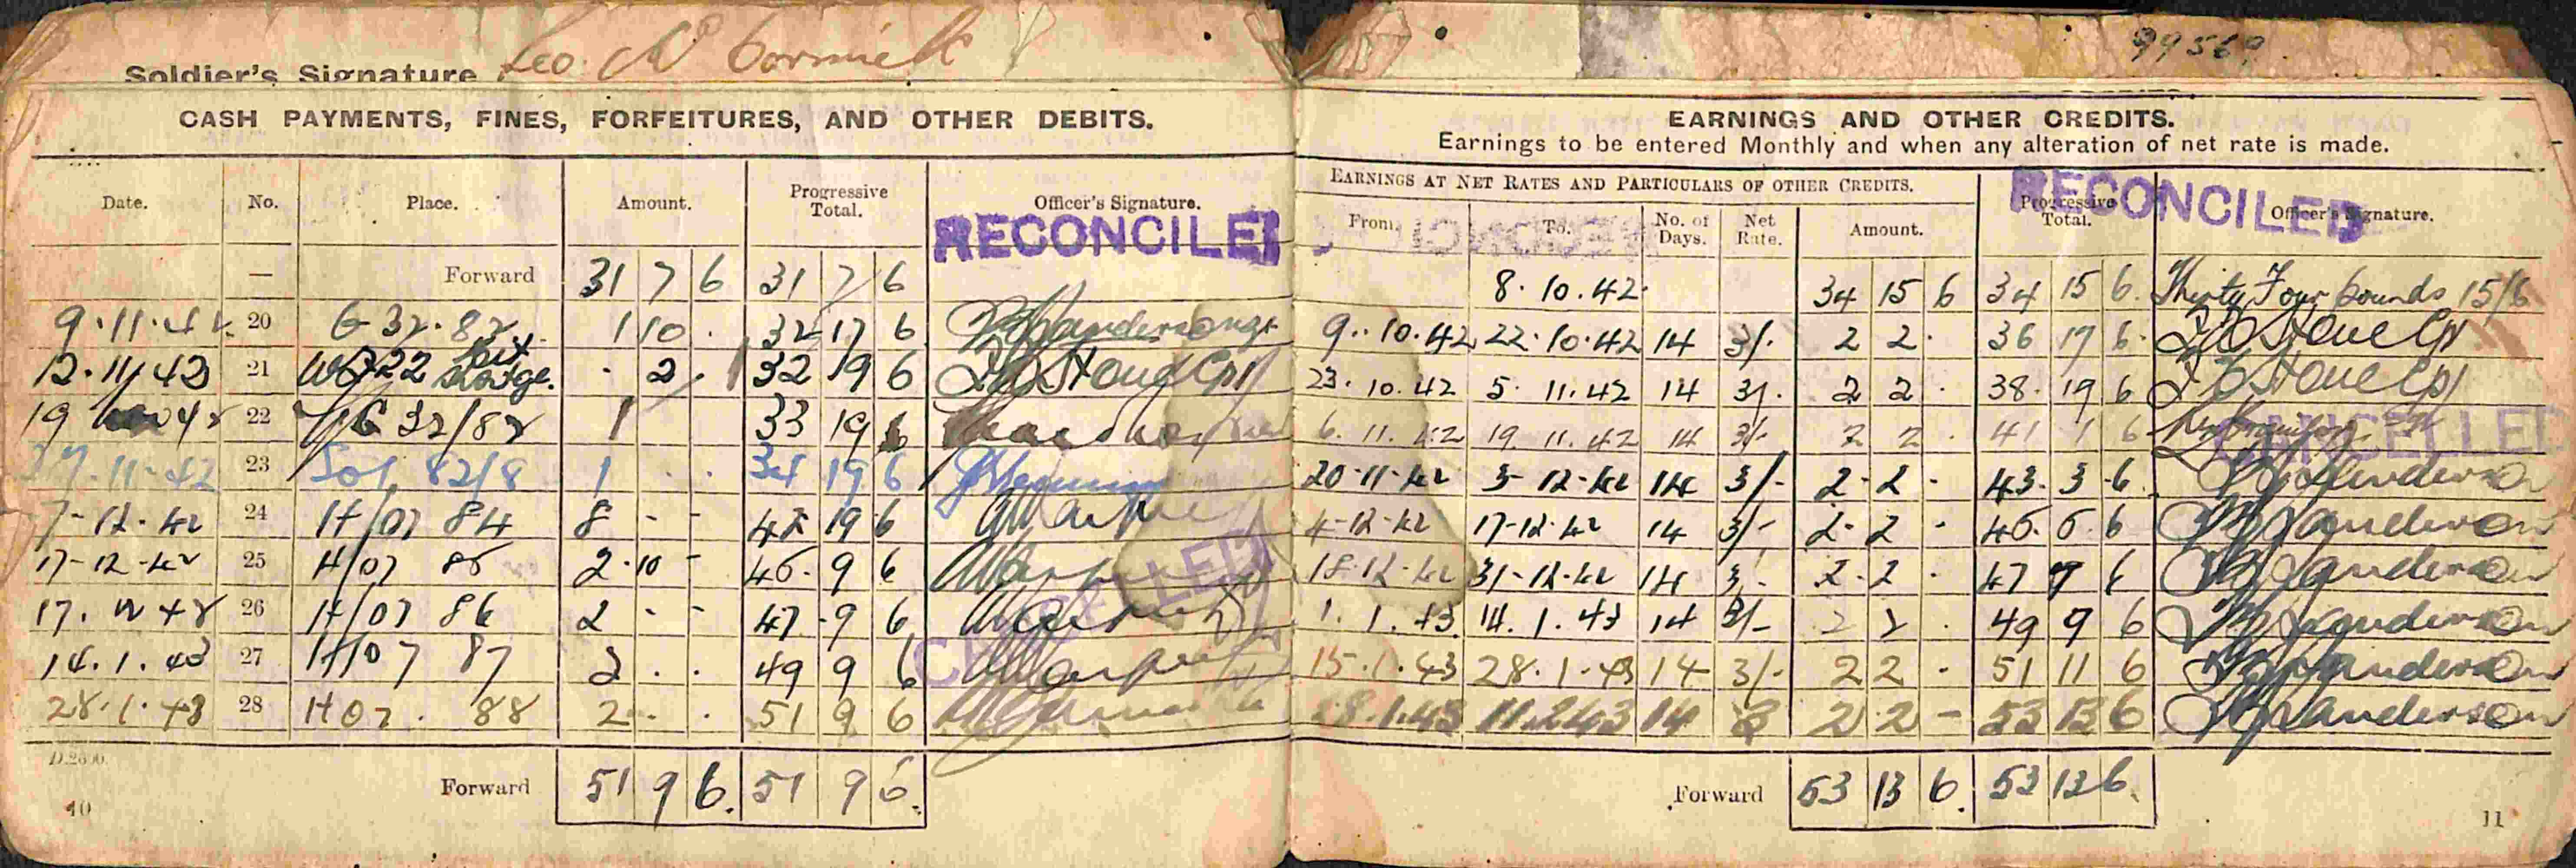 Soldier's Signature Leo Mc Cormick
99569
CASH PAYMENTS, FINES, FORFEITURES, AND OTHER DEBITS.
Date. No. Place. Amount. Progressive Total. Officer's Signature.
RECONCILED
— Forward 31 7 6 31 7 6
9.11.42 20 G 32.82 1 10 . 32 17 6
12.11.42 21 22 . 2 . 32 19 6
19 42 22 32/82 1 33 19 6
27.11.42 23 82/8 1 . . 34 19 6
7-12-42 24 H/07 84 8 - - 42 19 6
17-12-42 25 H/07 2.10 - 45.9 6
17. 12 42 26 H/07 86 2 - - 47.9 6
14.1.43 27 H/07 87 2 . . 49 9 6
28.1.43 28 H07. 88 2 . . 51 9 6
CANCELLED
D.2600.
Forward 51 9 6. 51 9 6.
10
EARNINGS AND OTHER CREDITS.
Earnings to be entered Monthly and when any alteration of net rate is made.
EARNINGS AT NET RATES AND PARTICULARS OF OTHER CREDITS.
From. To. No. of Days. Net Rate. Amount. Progressive Total. Officer's Signature.
RECONCILED
8.10.42 34 15 6 34 15 6 Thirty Four pounds 15/6
9.10.42 22.10.42 14 3/- 2 2 . 36 17 6 Stone Cpl
23.10.42 5.11.42 14 3/- 2 2 . 38.19 6 Stone Cpl
6.11.42 19.11.42 14 3/- 2 2 . 41 1 6
CANCELLED
20-11-42 3-12-42 14 3/- 2-2 - 43.3.6 Sanderson
4-12-42 17-12-42 14 3/- 2-2 - 45.5.6 Sanderson
18-12-42 31-12-42 14 3- 2-2 - 47 7 6 Sanderson
1.1.43 14.1.43 14 3/- 2 2 . 49 9 6 Sanderson
15.1.43 28.1.43 14 3/- 2 2 - 51 11 6 Sanderson
28.1.43 11.2.43 14 3 2 2 - 53 13 6 Sanderson
Forward 53 13 6. 53 13 6.
11